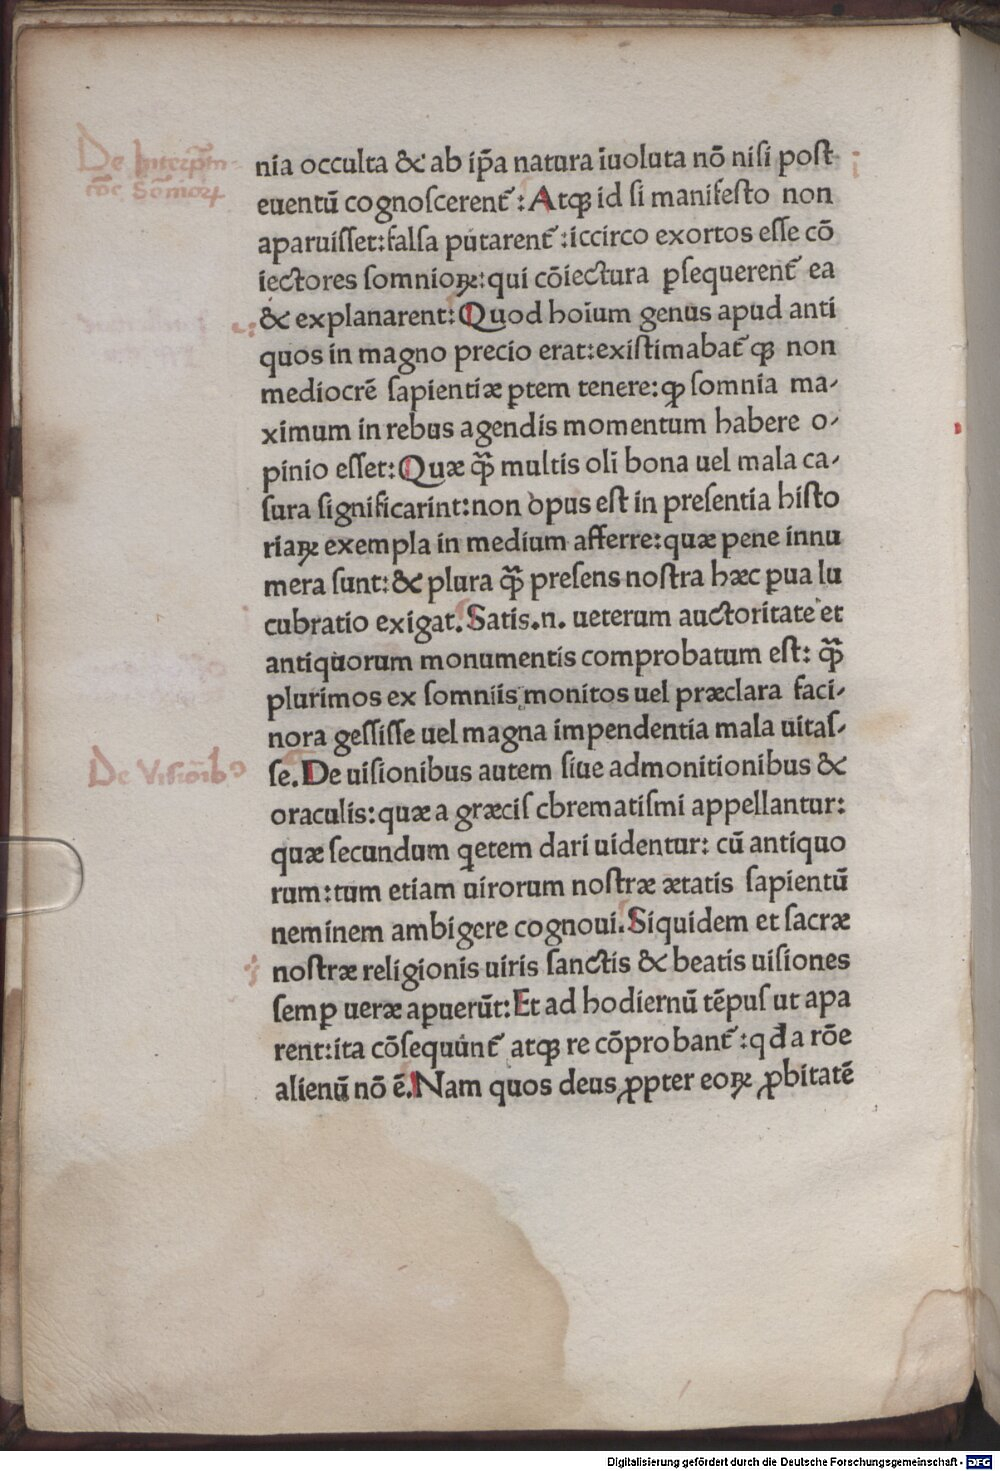 De Interp̃ta-
tõe Som̃iorꝝ
nia occulta & ab ip̃a natura iuoluta nõ nisi post
euentũ cognoscerent̃: Atqꝫ id si manifesto non
aparuisset: falsa putarent̃: iccirco exortos esse cõ
iectores somnioꝝ: qui cõiectura ꝑsequerent̃ ea
& explanarent: Quod hoium genus apud anti
quos in magno precio erat: existimabat̃ qꝫ non
mediocrẽ sapientiæ ꝑtem tenere: ꝙ somnia ma-
ximum in rebus agendis momentum habere o-
pinio esset: Quæ q̃ȝ multis oli bona uel mala ca-
sura significarint: non opus est in presentia histo
riaꝝ exempla in medium afferre: quæ pene innu
mera sunt: & plura q̃ȝ presens nostra hæc ꝑua lu
cubratio exigat. Satis .n. ueterum auctoritate et
antiquorum monumentis comprobatum est: q̃ȝ
plurimos ex somniis monitos uel præclara faci-
nora gessisse uel magna impendentia mala uitas-
De Visionib⁹
se. De uisionibus autem siue admonitionibus &
oraculis: quæ a græcis chrematismi appellantur:
quæ secundum q̇etem dari uidentur: cũ antiquo
rum: tum etiam uirorum nostræ ætatis sapientũ
neminem ambigere cognoui. Siquidem et sacræ
nostræ religionis uiris sanctis & beatis uisiones
semꝑ ueræ aꝑuerũt: Et ad hodiernũ tẽpus ut apa
rent: ita cõsequunt̃ atqꝫ re cõprobant̃: qđ a rõe
alienũ nõ ẽ. Nam quos deus ꝓpter eoꝝ ꝓbitatẽ
Digitalisierung gefördert durch die Deutsche Forschungsgemeinschaft - DFG